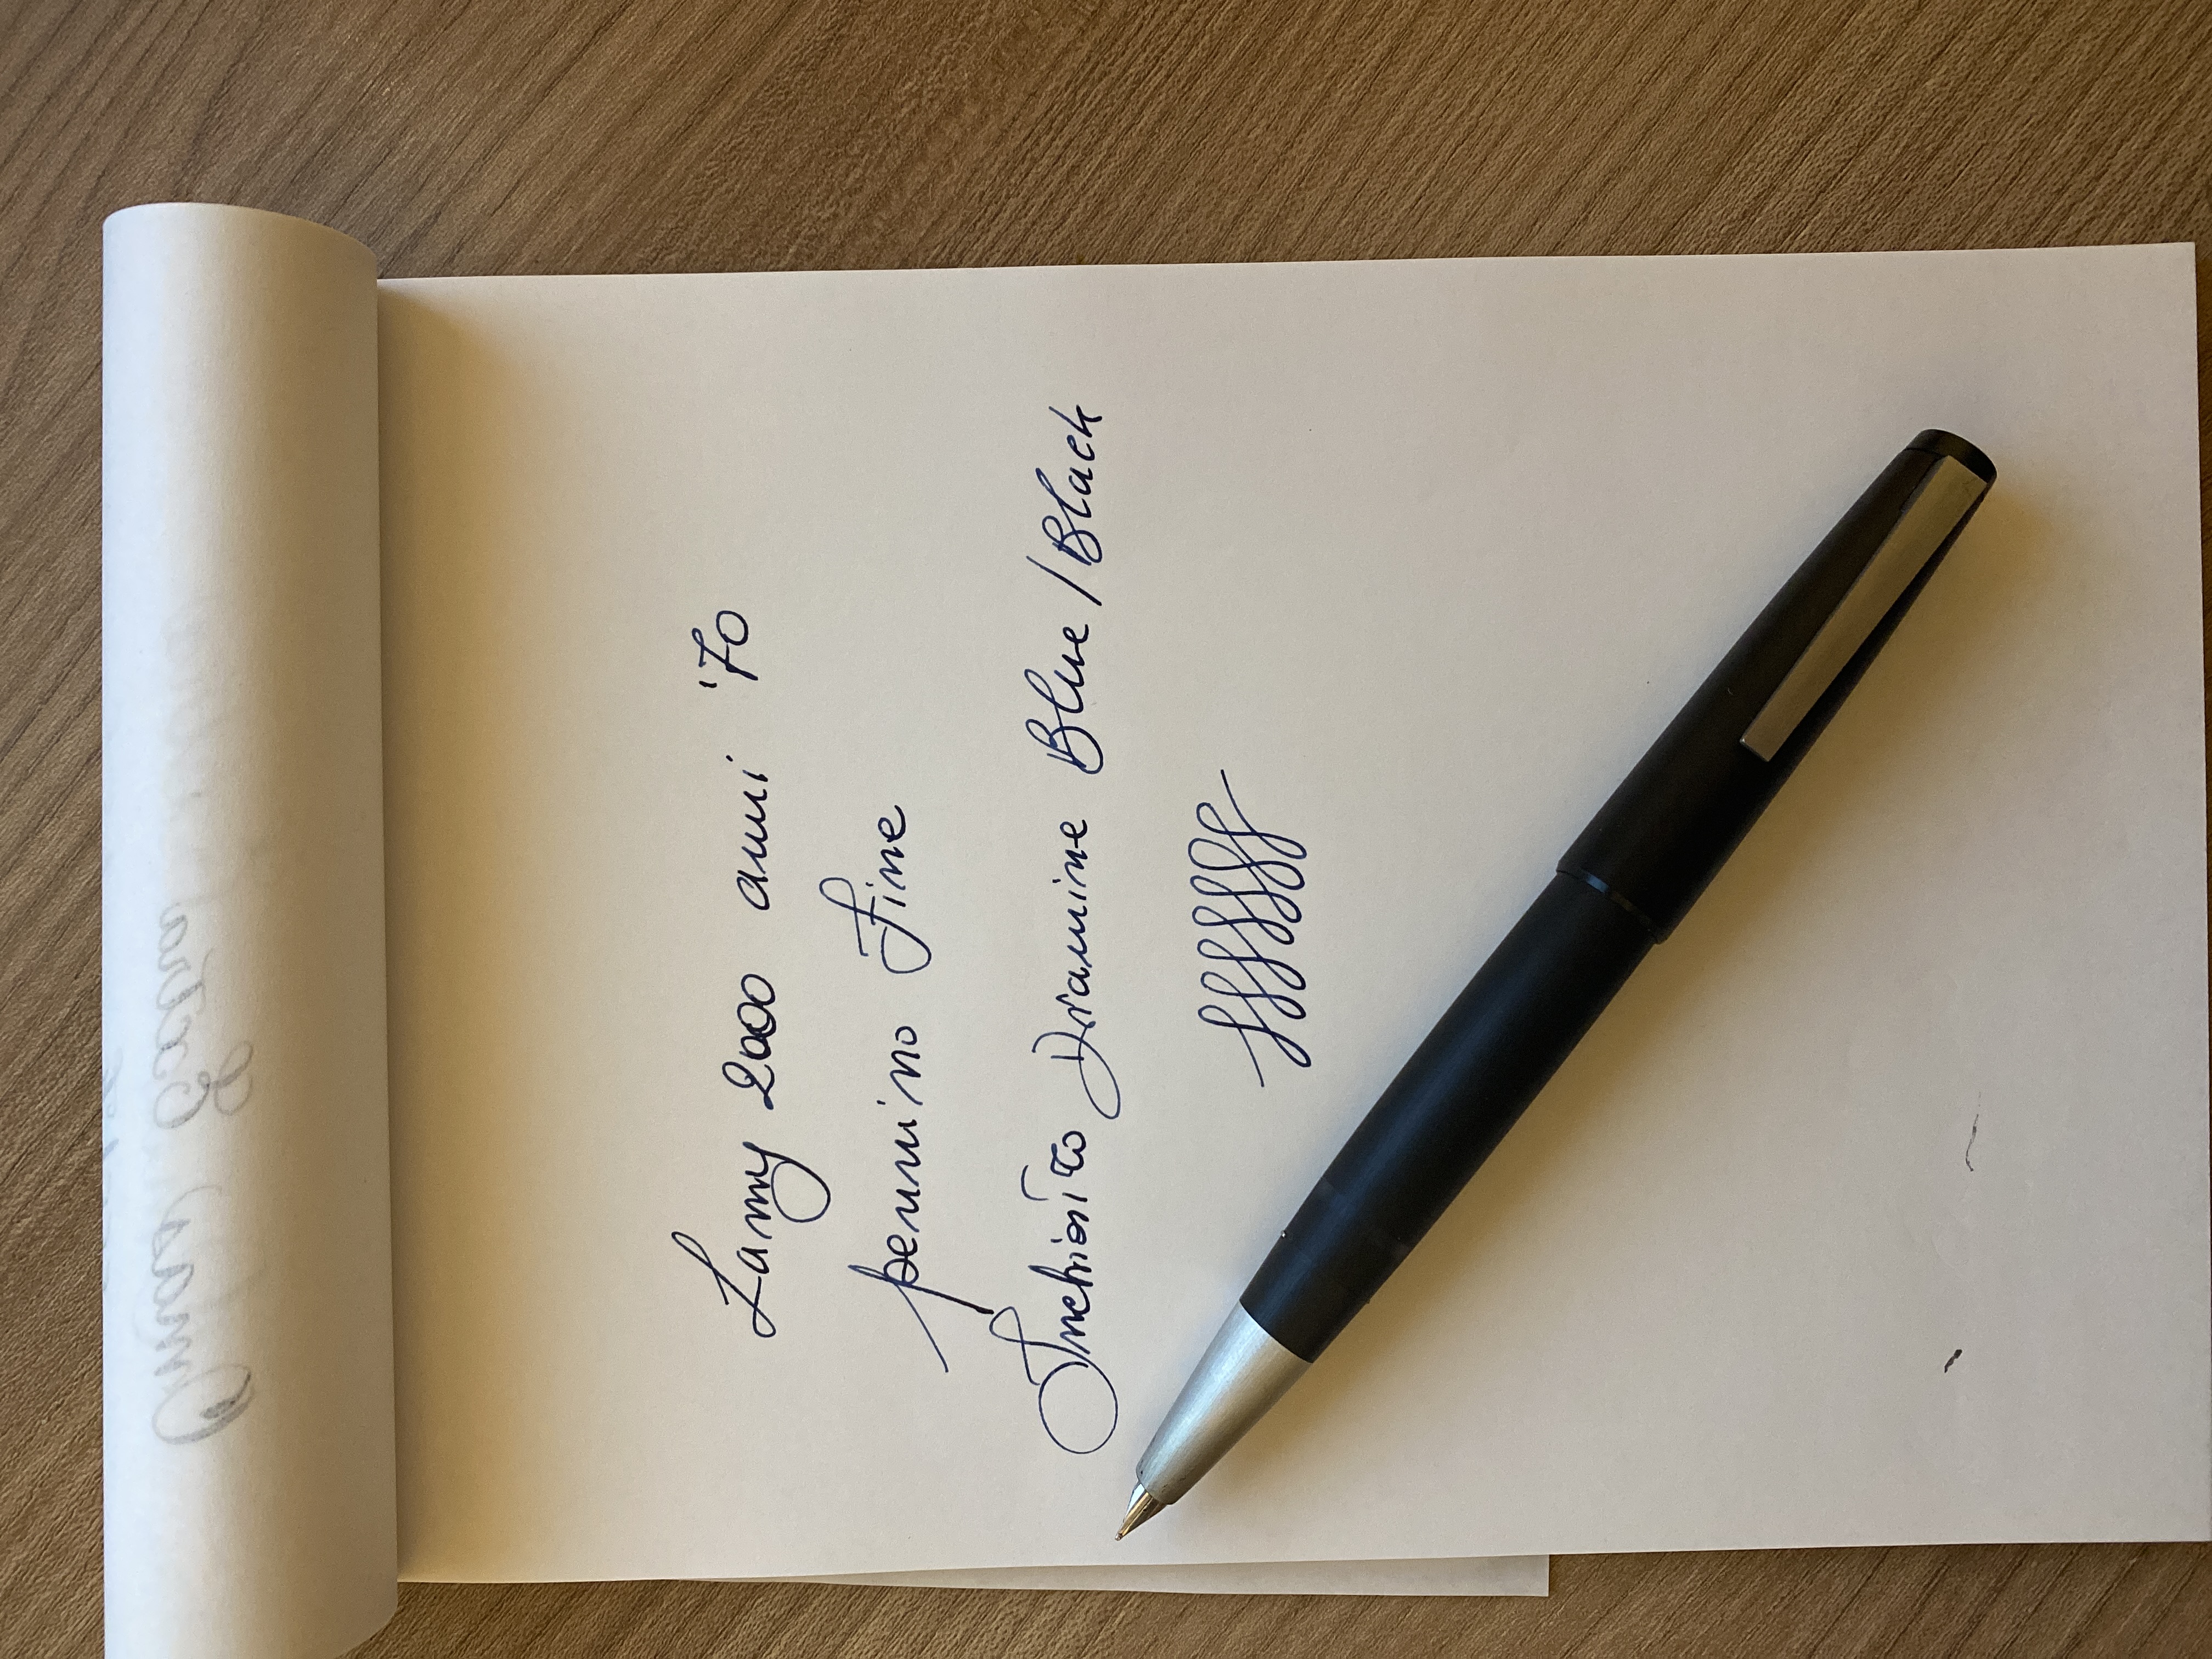 Lamy 2000 anni '70
pennino Fine
Inchiostro Diamine Blue/Black